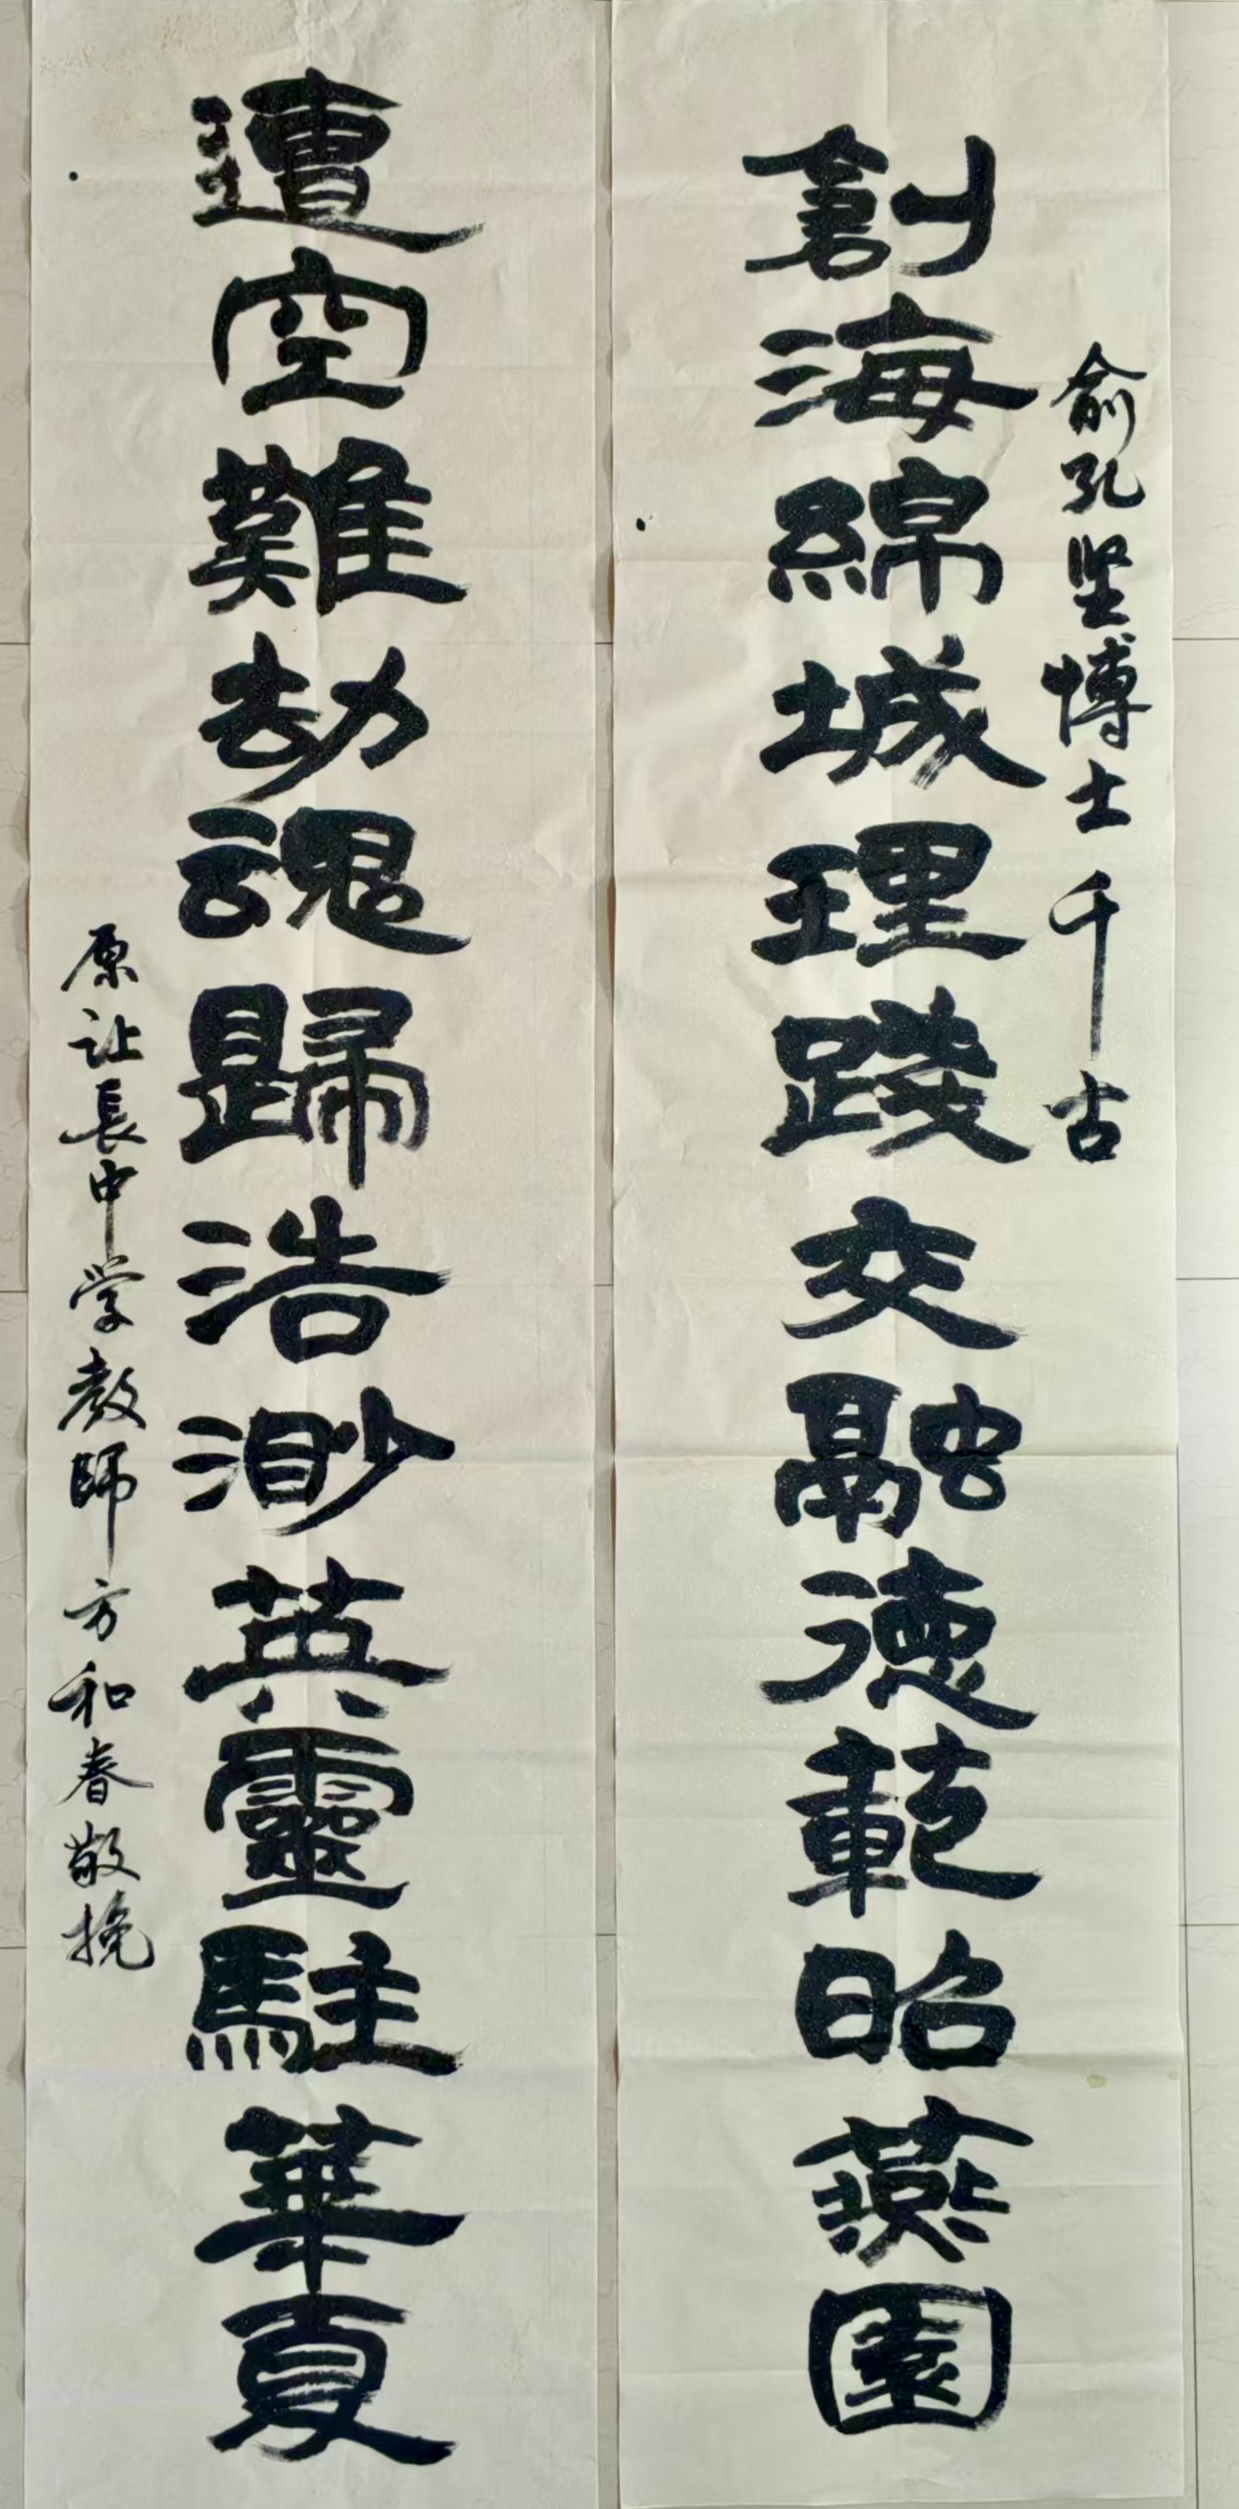 俞孔坚博士千古
創海綿城理踐交融德範昭燕園
遭空難劫魂歸浩渺英靈駐華夏
原让長中学教師方和春敬挽